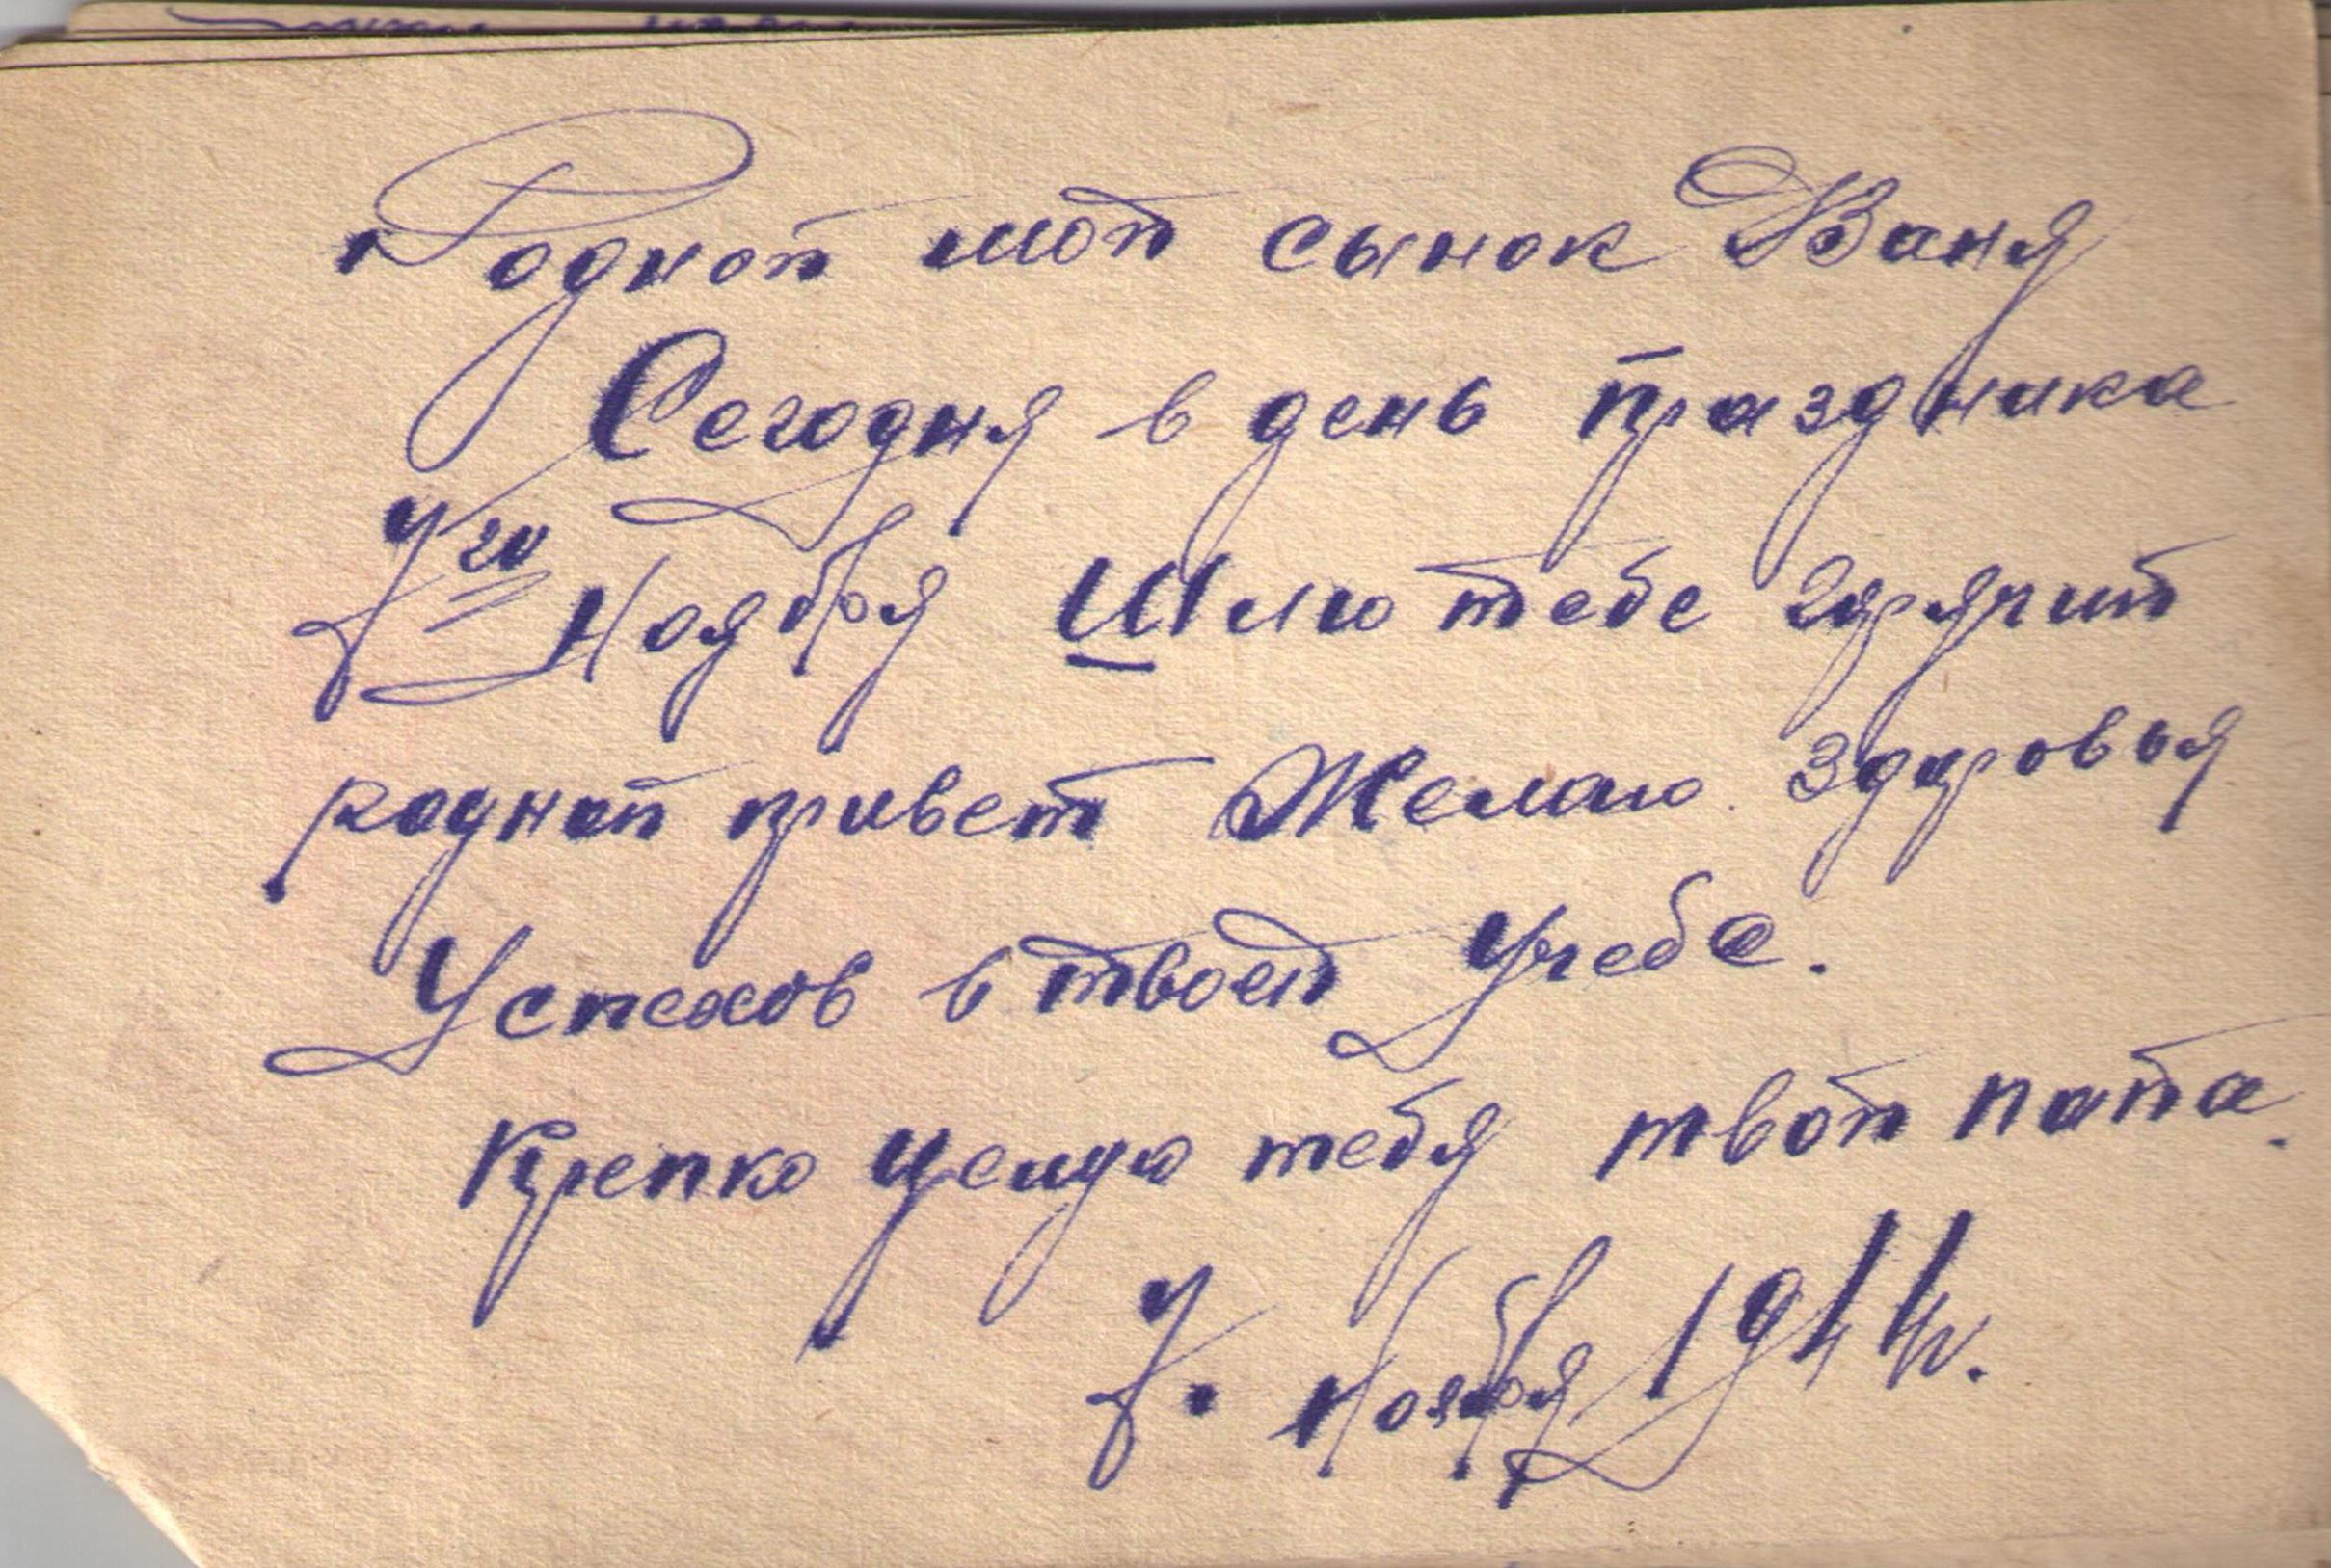 Родной мой сынок Ваня
Сегодня в день праздника
7го Ноября Шлю тебе горячий
родной привет Желаю здоровья
Успехов в твоей Учебе.
Крепко целую тебя твой папа.
7. Ноября 1944г.